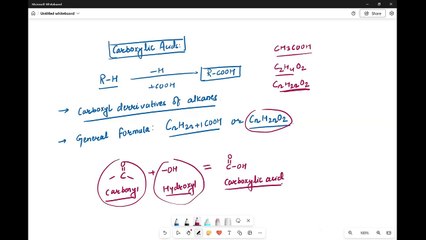 Microsoft Whiteboard
Untitled whiteboard
Carboxylic Acids:
CH3COOH
R-H
-H
+COOH
R-COOH
C2H4O2
CnH2nO2
→ Carboxyl derrivatives of alkanes
→ General formula: CnH2n+1COOH or CnH2nO2
O
-C-
+
-OH
=
O
C-OH
Carbonyl
Hydroxyl
Carboxylic acid
100%